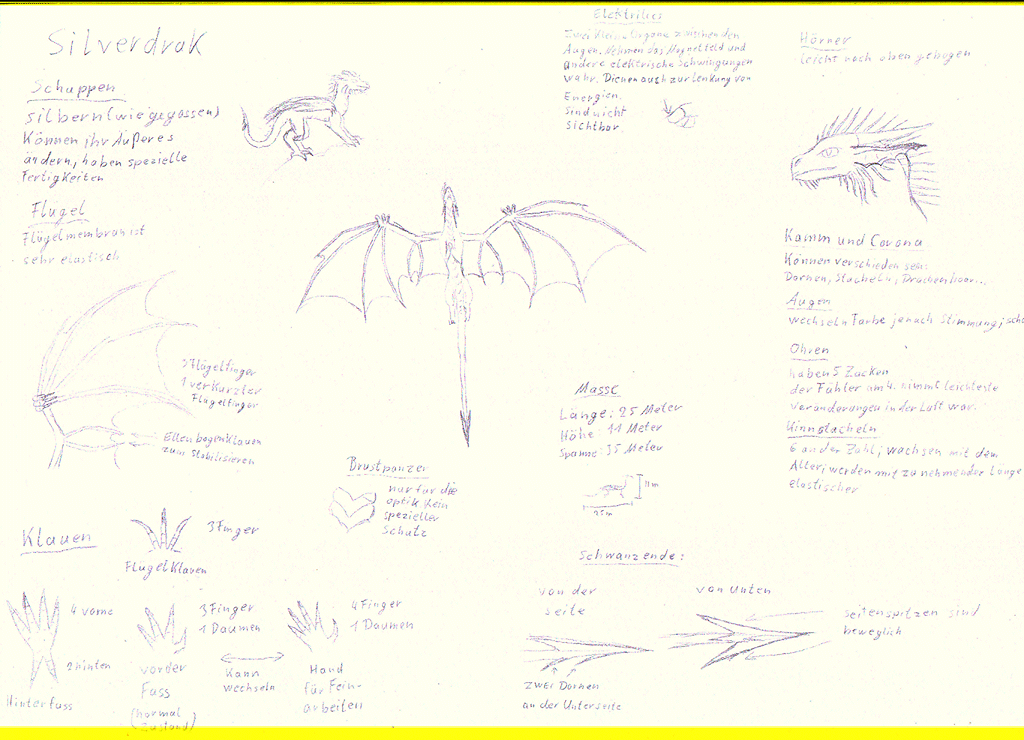 Silverdrak
Schuppen
silbern (wie gegossen)
Können ihr Äußeres
ändern, haben spezielle
Fertigkeiten
Flügel
Flügelmembran ist
sehr elastisch
3 Flügelfinger
1 verkürzter
Flügelfinger
Ellenbogenklauen
zum Stabilisieren
Klauen
3 Finger
Flügelklauen
4 vorne
2 hinten
Hinterfuss
3 Finger
1 Daumen
vorder
Fuss
(normal
Zustand)
Kann
wechseln
4 Finger
1 Daumen
Hand
für Fein-
arbeiten
Brustpanzer
nur für die
optik kein
spezieller
Schutz
Elektrilies
Zwei kleine Organe zwischen den
Augen. Nehmen das Magnetfeld und
andere elektrische Schwingungen
wahr. Dienen auch zur Lenkung von
Energien.
Sind nicht
sichtbar
Hörner
leicht nach oben gebogen
Kamm und Corona
Können verschieden sein:
Dornen, Stacheln, Drachenhaar...
Augen
wechseln Farbe je nach Stimmung;
Ohren
haben 5 Zacken
der Fühler am 4. nimmt leichteste
Veränderungen in der Luft war.
Kinnstacheln
6 an der Zahl; wachsen mit dem
Alter; werden mit zunehmender Länge
elastischer
Masse
Länge: 25 Meter
Höhe: 11 Meter
Spannw: 35 Meter
11m
25m
Schwanzende:
von der
seite
von unten
seitenspitzen sind
beweglich
zwei Dornen
an der Unterseite